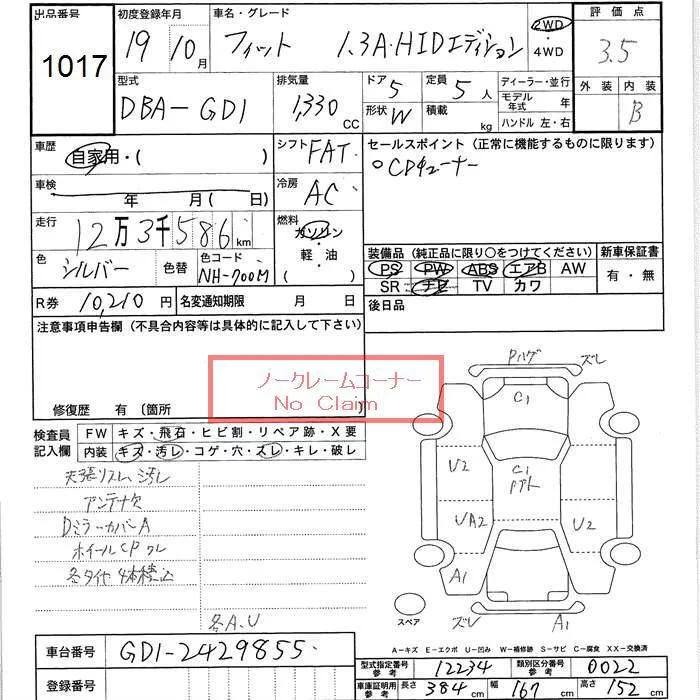 出品番号 初度登録年月 車名・グレード 評価点
1017 19 10月 フィット 1.3A・HIDエディション 2WD ・4WD 3.5
型式 排気量 ドア 5 定員 5人 ディーラー・並行 外装 内装
DBA-GD1 1,330 CC 形状 W 積載 kg モデル年式 年 B
ハンドル 左・右
車歴 自家用・( ) シフト FAT セールスポイント(正常に機能するものに限ります)
○CDチューナー
車検 年 月( 日) 冷房 AC
走行 12万3千586km 燃料 ガソリン・軽・油 ( )
装備品(純正品に限り○をつけてください) 新車保証書
色 シルバー 色替 色コード NH-700M PS PW ABS エアB AW 有・無
SR ナビ TV カワ
R券 10,210円 名変通知期限 月 日 後日品
注意事項申告欄(不具合内容等は具体的に記入して下さい)
ノークレームコーナー
No Claim
修復歴 有 〔箇所 〕
検査員記入欄 FW キズ・飛石・ヒビ割・リペア跡・X要
内装 キズ・汚レ・コゲ・穴・ズレ・キレ・破レ
アンテナ欠
DミラーカバーA
各A、U
ズレ
C1
C1
U2
UA2 U2
A1
スペア ズレ A1
A-キズ E-エクボ U-凹み W-補修跡 S-サビ C-腐食 XX-交換済
車台番号 GD1-2429855
登録番号
型式指定番号 参考 12234 類別区分番号 参考 0022
車庫証明用 参考 長さ 384cm 幅 167cm 高さ 152cm